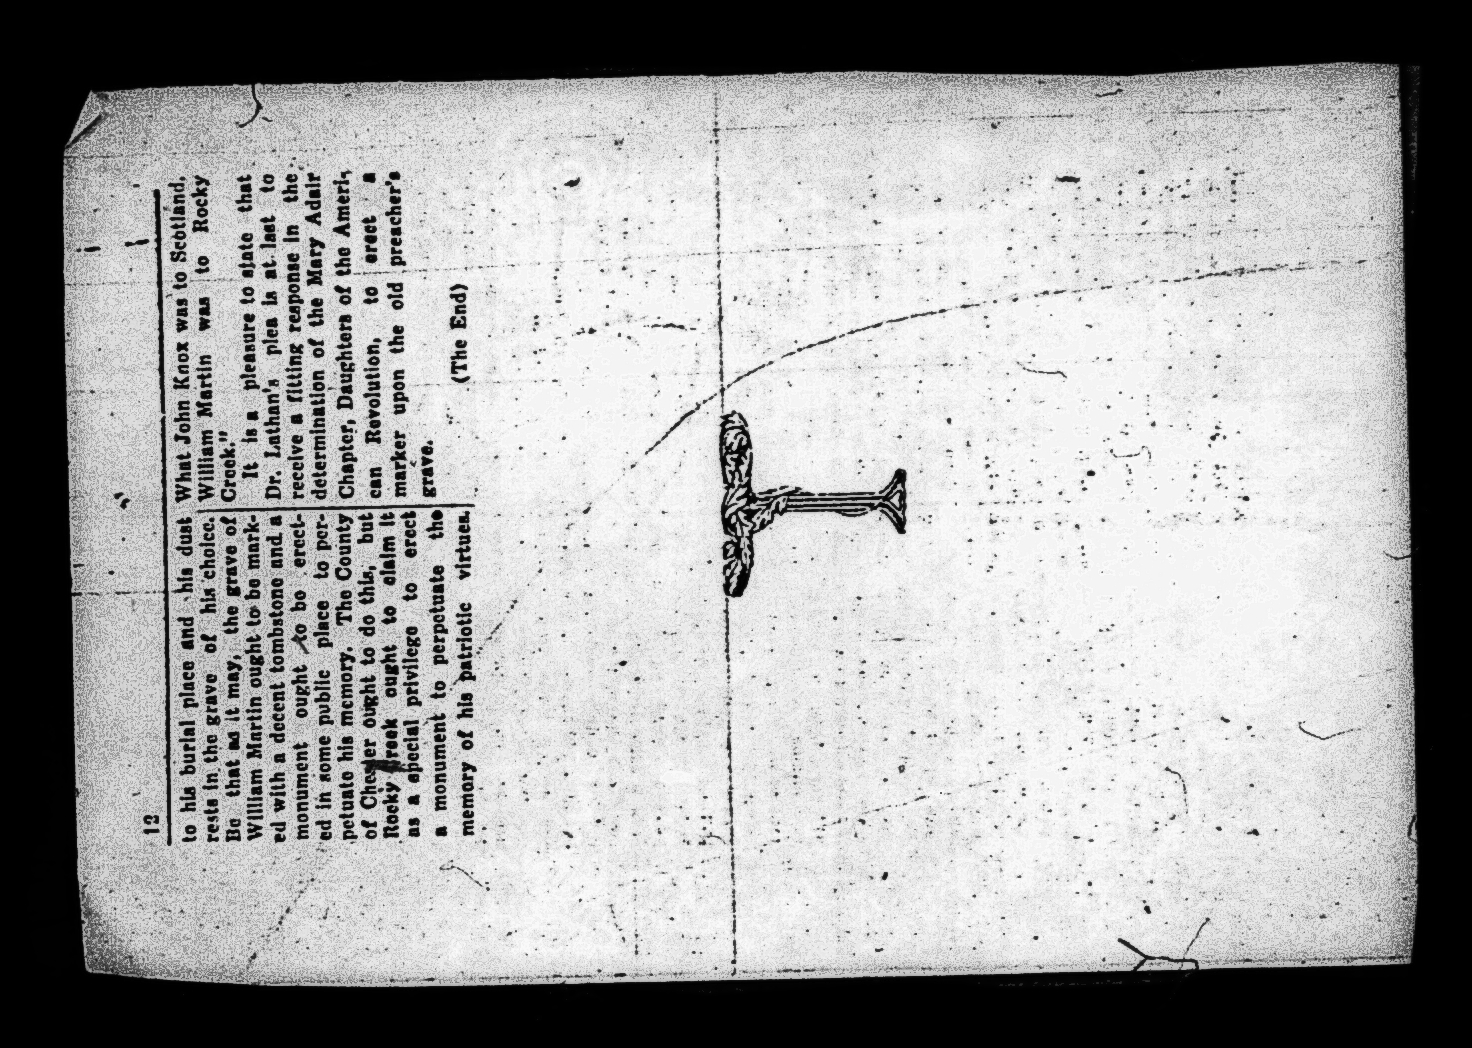 12
to his burial place and his dust
rests in the grave of his choice.
Be that as it may, the grave of
William Martin ought to be mark-
ed with a decent tombstone and a
monument ought to be erect-
ed in some public place to per-
petuate his memory. The County
of Chester ought to do this, but
Rocky Creek ought to claim it
as a special privilege to erect
a monument to perpetuate the
memory of his patriotic virtues.
What John Knox was to Scotland,
William Martin was to Rocky
Creek."
It is a pleasure to state that
Dr. Lathan's plea is at last to
receive a fitting response in the
determination of the Mary Adair
Chapter, Daughters of the Ameri-
can Revolution, to erect a
marker upon the old preacher's
grave.
(The End)